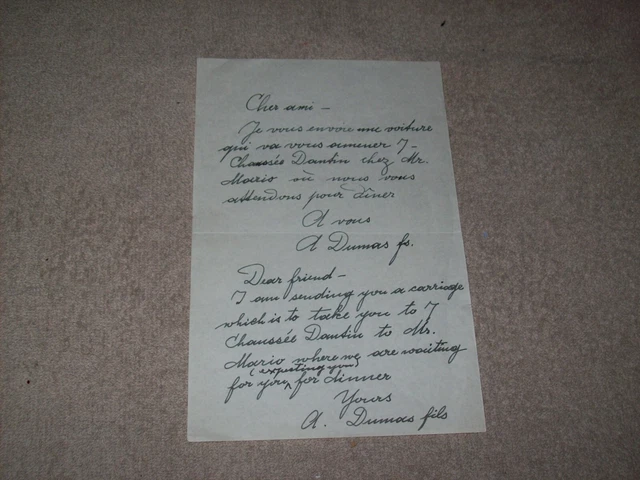 Cher ami -
Je vous envoie une voiture
qui va vous amener 7 -
Chaussée Dantin chez Mr.
Mario où nous vous
attendons pour dîner
A vous
A Dumas fs.
Dear friend -
I am sending you a carriage
which is to take you to 7
Chaussée Dantin to Mr.
Mario where we are waiting
(expecting you)
for you ^ for dinner
Yours
A. Dumas fils